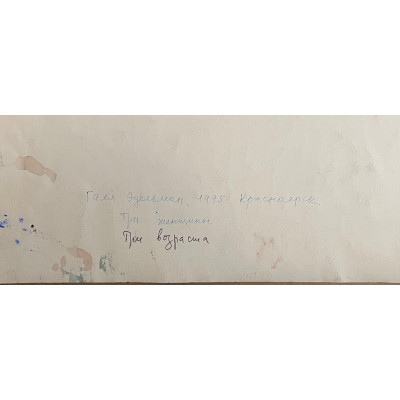 Галя Эдельман 1995 Красноярск
Три женщины
Три возраста